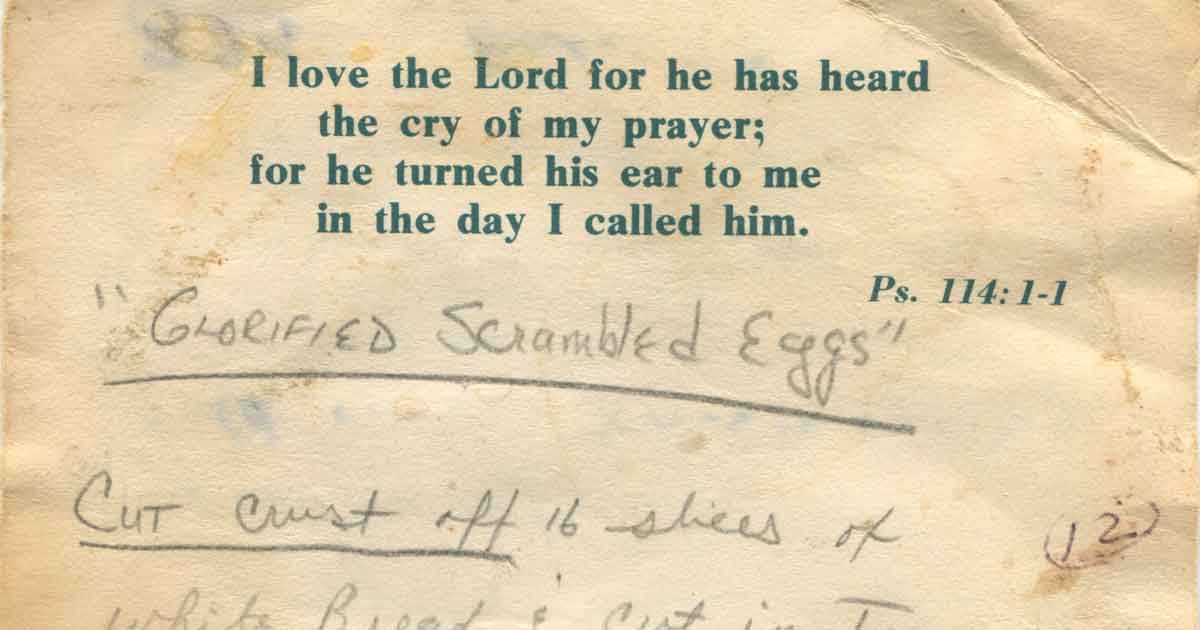 I love the Lord for he has heard
the cry of my prayer;
for he turned his ear to me
in the day I called him.
Ps. 114:1-1
"GLORIFIED Scrambled Eggs"
CUT crust off 16 slices of
12
white Bread & Cut in